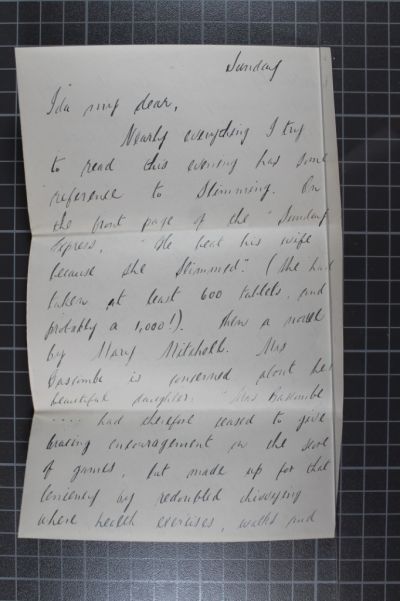 Sunday
Ida my dear,
Nearly everything I try
to read this evening has some
reference to slimming. On
the front page of the "Sunday
Express, "He beat his wife
because she slimmed". (She had
taken at least 600 tablets, and
probably a 1,000!). Then a novel
by Mary Mitchell. Mrs
Bascombe is concerned about her
beautiful daughter: "Mrs Bascombe
.... had therefore ceased to give
bracing encouragement on the score
of games, but made up for that
leniency by redoubled chivvying
where health exercises, walks and